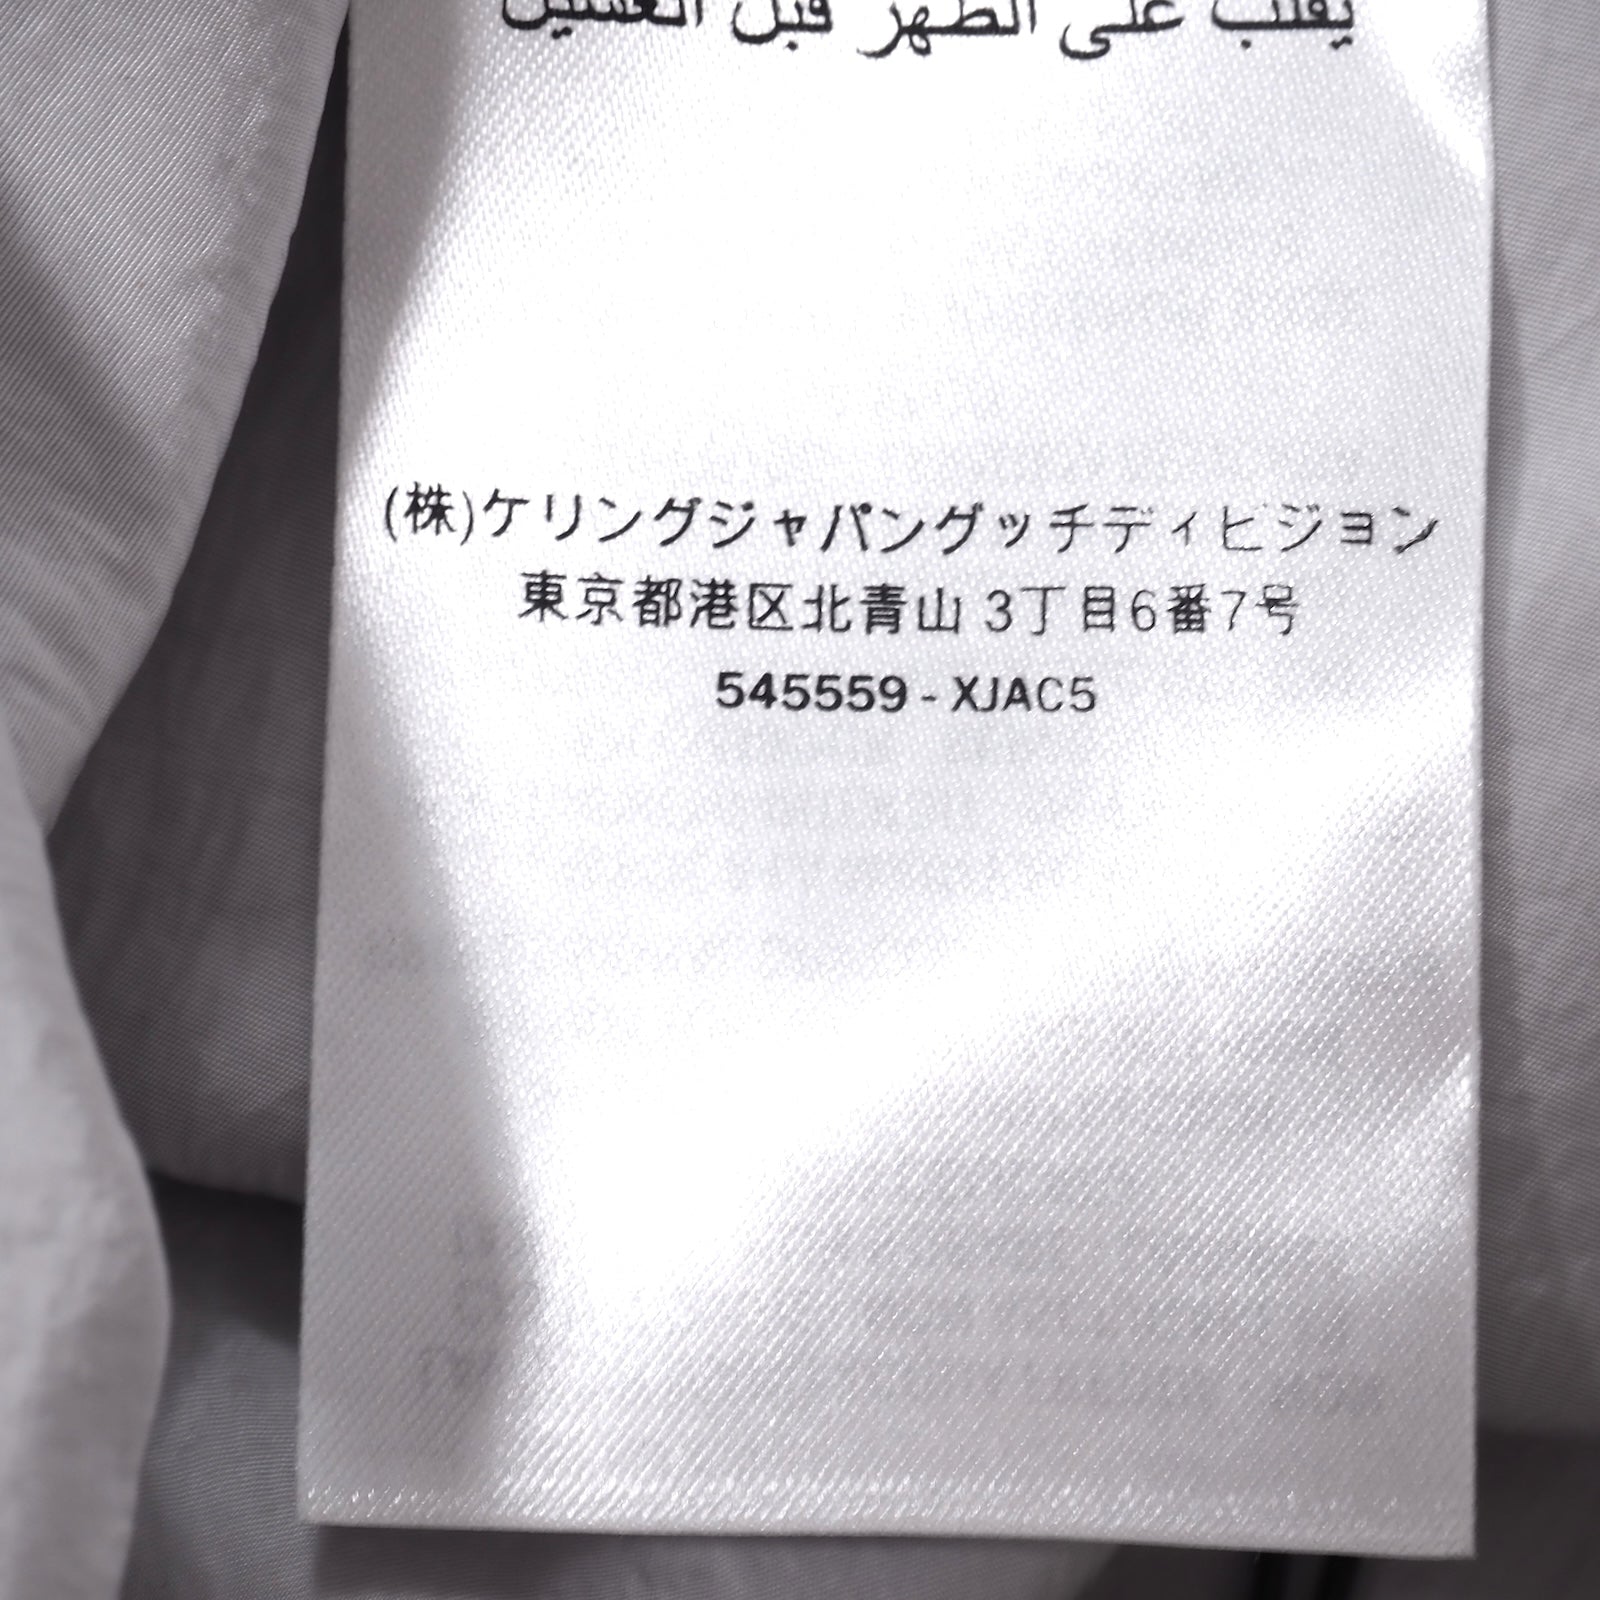 يقلب على الظهر قبل الغسيل
(株)ケリングジャパングッチディビジョン
東京都港区北青山3丁目6番7号
545559-XJAC5